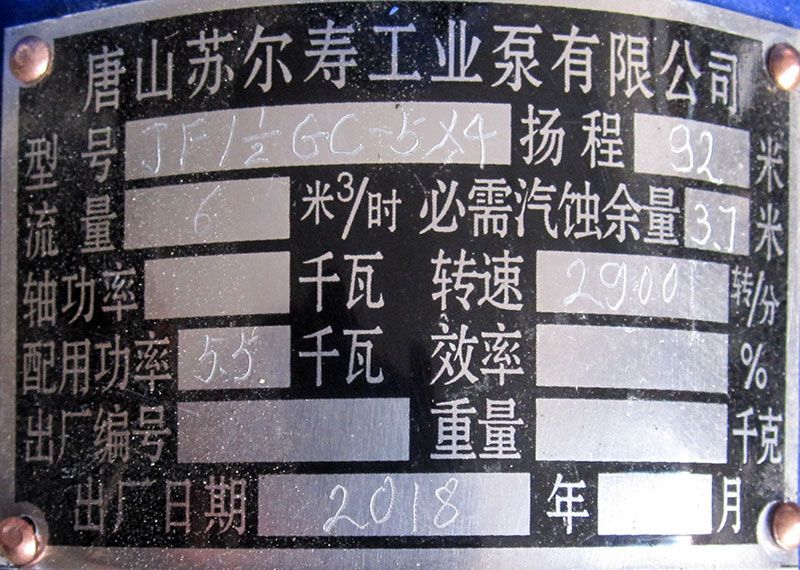 唐山苏尔寿工业泵有限公司
型号 JF1½GC-5X4 扬程 92 米
流量 6 米³/时 必需汽蚀余量 3.7 米
轴功率 千瓦 转速 2900 转/分
配用功率 5.5 千瓦 效率 %
出厂编号 重量 千克
出厂日期 2018 年 月